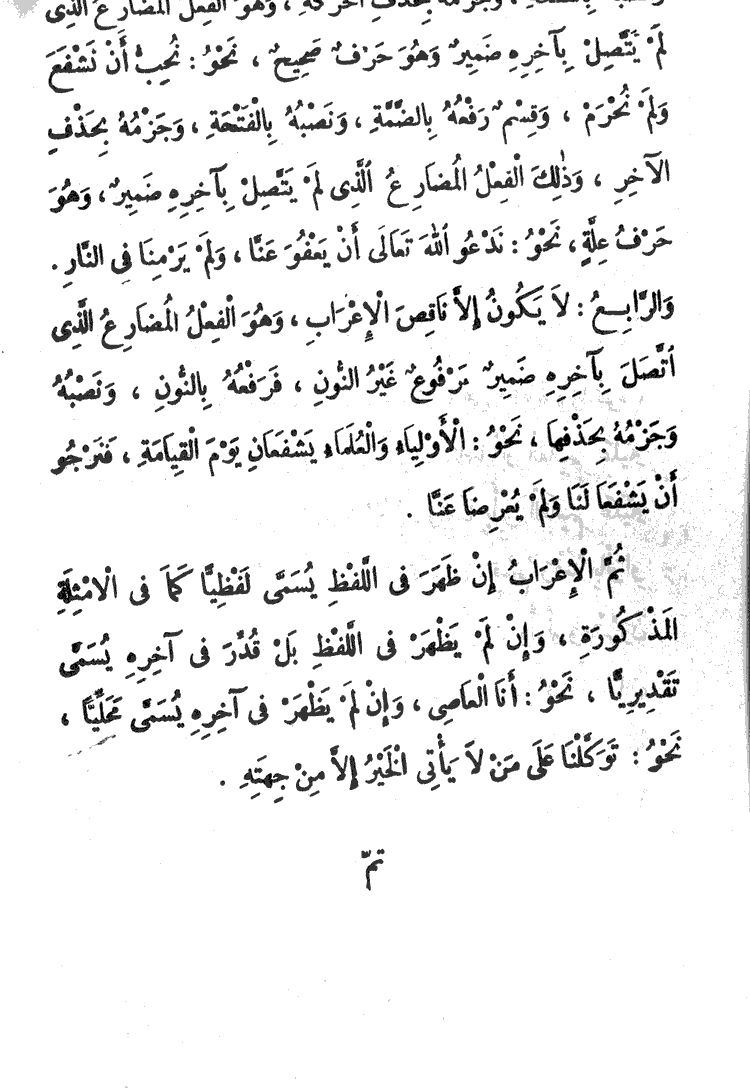 وَجَزْمُهُ بِحَذْفِ الْحَرَكَةِ ، وَهُوَ الْفِعْلُ الْمُضَارِعُ الَّذِى
لَمْ يَتَّصِلْ بِآخِرِهِ ضَمِيرٌ وَهُوَ حَرْفٌ صَحِيحٌ ، نَحْوُ : نُحِبُّ أَنْ نَشْفَعَ
وَلَمْ نُحْرَمْ ، وَقِسْمٌ رَفْعُهُ بِالضَّمَّةِ ، وَنَصْبُهُ بِالْفَتْحَةِ ، وَجَزْمُهُ بِحَذْفِ
الْآخِرِ ، وَذٰلِكَ الْفِعْلُ الْمُضَارِعُ الَّذِى لَمْ يَتَّصِلْ بِآخِرِهِ ضَمِيرٌ ، وَهُوَ
حَرْفُ عِلَّةٍ ، نَحْوُ : نَدْعُو اللّٰهَ تَعَالَى أَنْ يَعْفُوَ عَنَّا ، وَلَمْ يَرْمِنَا فِى النَّارِ .
وَالرَّابِعُ : لاَ يَكُونُ إِلاَّ نَاقِصَ الْإِعْرَابِ ، وَهُوَ الْفِعْلُ الْمُضَارِعُ الَّذِى
اُتَّصَلَ بِآخِرِهِ ضَمِيرٌ مَرْفُوعٌ غَيْرُ النُّونِ ، فَرَفْعُهُ بِالنُّونِ ، وَنَصْبُهُ
وَجَزْمُهُ بِحَذْفِهَا ، نَحْوُ : الْأَوْلِيَاءِ وَالْعُلَمَاءِ يَشْفَعَانِ يَوْمَ الْقِيَامَةِ ، فَنَرْجُو
أَنْ يَشْفَعَا لَنَا وَلَمْ يُعْرِضَا عَنَّا .
ثُمَّ الْإِعْرَابُ إِنْ ظَهَرَ فِى اللَّفْظِ يُسَمَّى لَفْظِيًّا كَمَا فِى الْامْثِلَةِ
الْمَذْكُورَةِ ، وَإِنْ لَمْ يَظْهَرْ فِى اللَّفْظِ بَلْ قُدِّرَ فِى آخِرِهِ يُسَمَّى
تَقْدِيرِيًّا ، نَحْوُ : أَنَا الْعَاصِى ، وَإِنْ لَمْ يَظْهَرْ فِى آخِرِهِ يُسَمَّى مَحَلِّيًّا ،
نَحْوُ : تَوَكَّلْنَا عَلَى مَنْ لاَ يَأْتِى الْخَيْرُ إِلاَّ مِنْ جِهَتِهِ .
تمّ